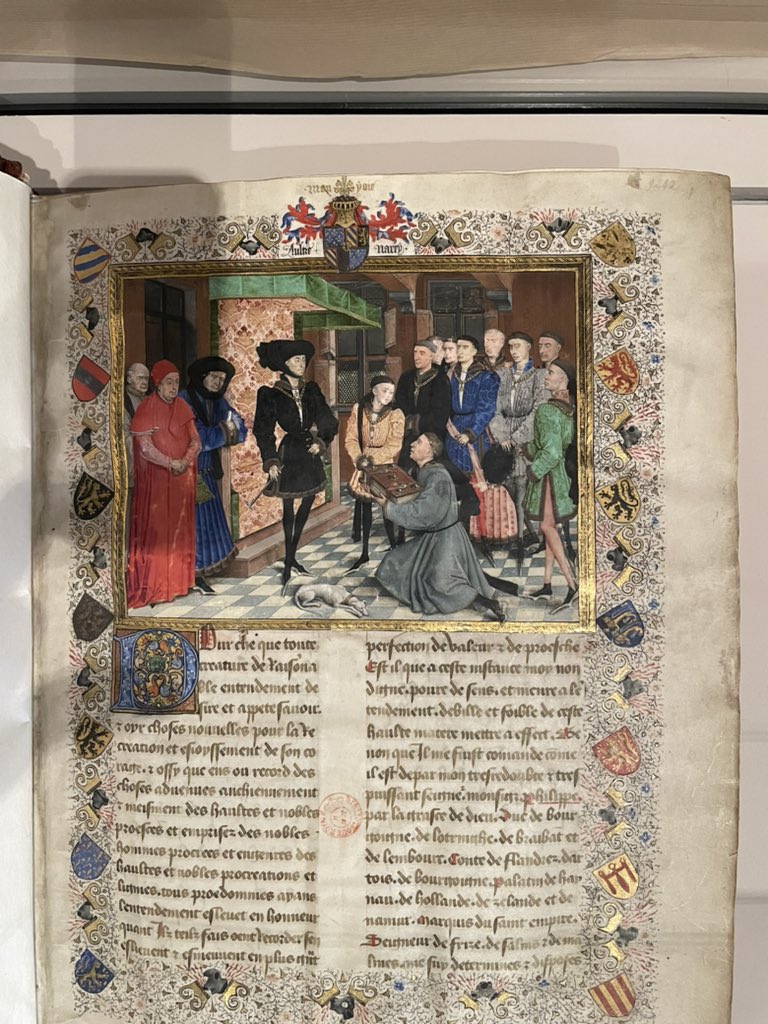 Mon Joie
Aultre Narey
9242
Pour che que toute
creature de Raison a
ble entendement de
sire et appete sauoir
& oyr choses nouuelles pour la Re
creation et esioyssement de son co
rage. & ossy que ens ou record des
choses aduenues anchiennement
& meisment des haultes et nobles
proesces et emprises des nobles
hommes procrees et engenres des
haultes et nobles procreations et
lignies. tous proedommes ayans
lentendement esleuet en honneur
quant Ilz telz fais oent recorder sen
eslieuent & esmeuuent en plus gnt
perfection de valeur & de proesche
Est il que a ceste instance moy non
digne. poure de sens. et menre de
tendement. debille et foible de ceste
haulte matere mettre a effect. Se
non que Il me fuist comande come
il est de par mon tresredoubte & tres
puissant seigneʳ. monsigʳ philippe.
par la grasce de dieu. Duc de bour
goingne. de lotringhe. de braibat et
de lembourc. Conte de flandrez. dar
tois. de bourgoingne. palatin de hay
nau. de hollande. de zelande et de
namur. Marquis du saint empire.
Seigneur de frize. de salins & de ma
lines. me suy determines & disposes